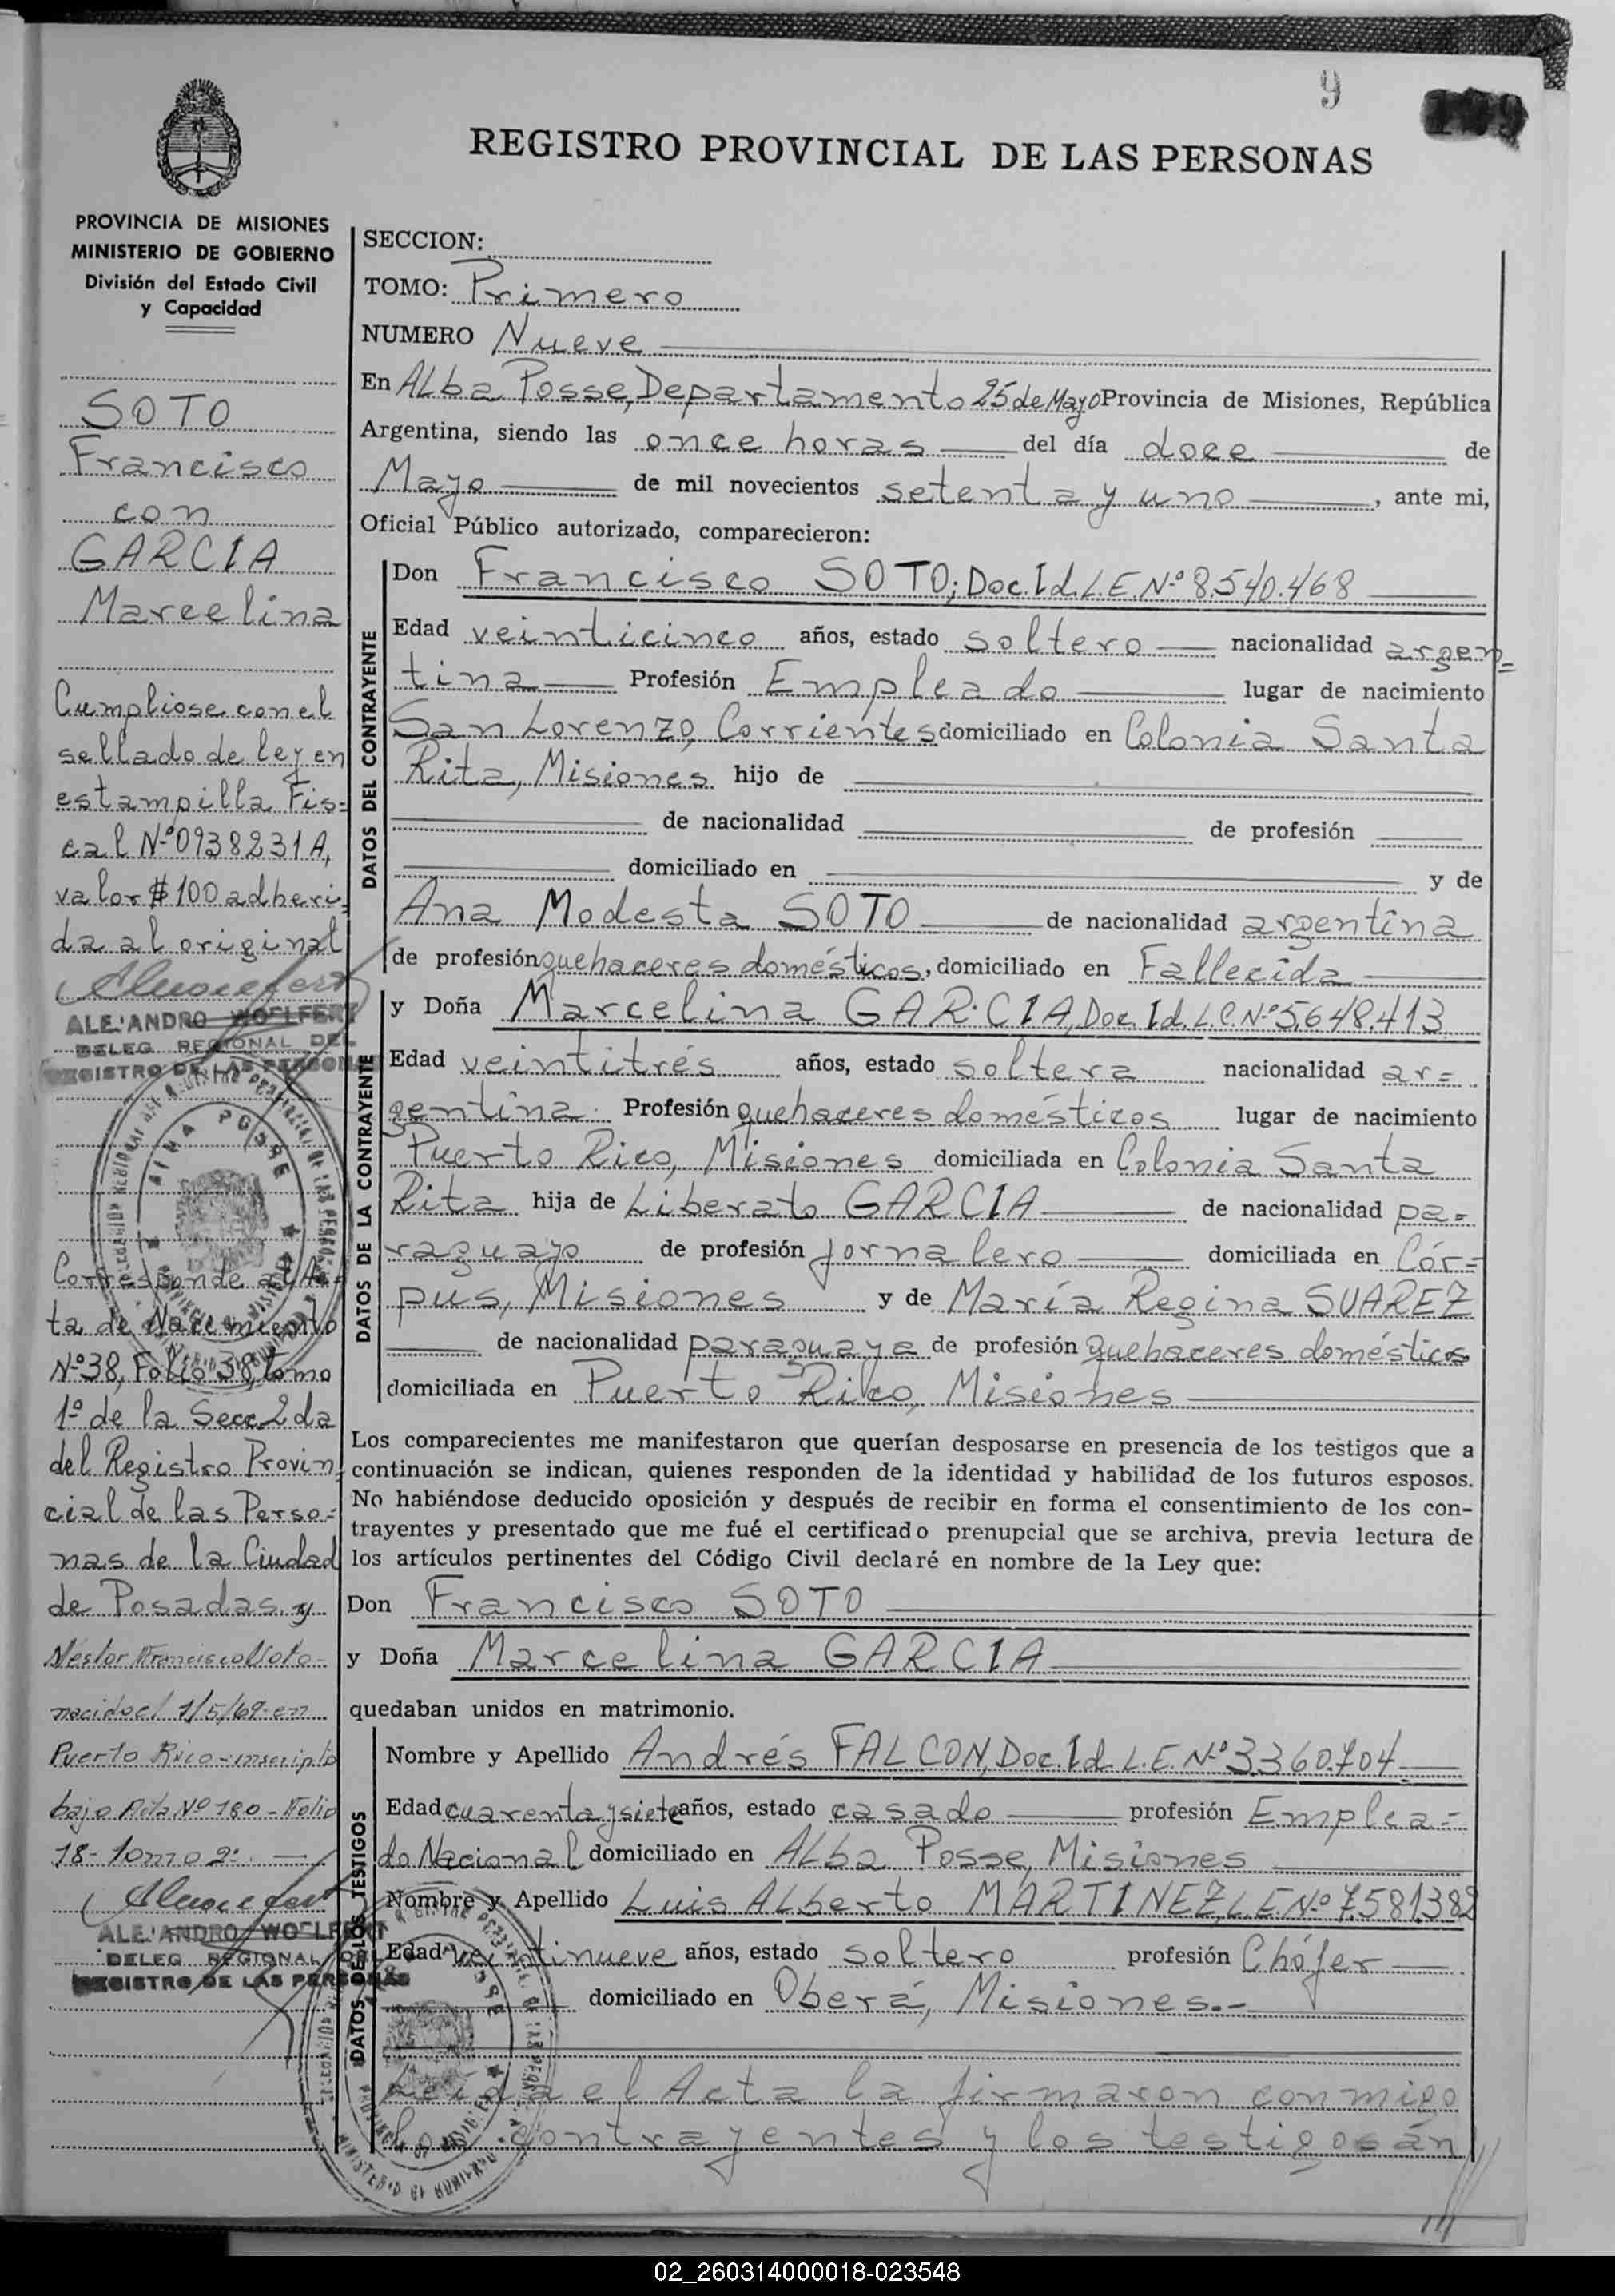 9
REGISTRO PROVINCIAL DE LAS PERSONAS
PROVINCIA DE MISIONES
MINISTERIO DE GOBIERNO
División del Estado Civil
y Capacidad
SOTO
Francisco
con
GARCIA
Marcelina
Cumpliose con el
sellado de ley en
estampilla Fis=
cal Nº 0938231A,
valor $100 adheri=
da al original
ALEJANDRO WOELFERT
DELEG. REGIONAL DEL
REGISTRO DE LAS PERSONAS
Corresponde al Ac=
ta de Nacimiento
Nº 38, Folio 38, tomo
1º de la Secc. 2da
del Registro Provin=
cial de las Perso=
nas de la Ciudad
de Posadas. y
Néstor Francisco Soto-
nacido el 1/5/69-en
Puerto Rico-inscripto
bajo Acta Nº 180-Folio
18-Tomo 2º.
ALEJANDRO WOELFERT
DELEG REGIONAL DEL
REGISTRO DE LAS PERSONAS
SECCION:
TOMO: Primero
NUMERO Nueve
En Alba Posse, Departamento 25 de Mayo Provincia de Misiones, República
Argentina, siendo las once horas del día doce de
Mayo de mil novecientos setenta y uno, ante mi,
Oficial Público autorizado, comparecieron:
DATOS DEL CONTRAYENTE
Don Francisco SOTO; Doc. Id. L.E. Nº 8.540.468
Edad veinticinco años, estado soltero nacionalidad argen=
tina Profesión Empleado lugar de nacimiento
San Lorenzo, Corrientes domiciliado en Colonia Santa
Rita, Misiones hijo de
de nacionalidad de profesión
domiciliado en y de
Ana Modesta SOTO de nacionalidad argentina
de profesión quehaceres domésticos, domiciliado en Fallecida
DATOS DE LA CONTRAYENTE
y Doña Marcelina GARCIA, Doc. Id. L.C. Nº 5.648.413
Edad veintitrés años, estado soltera nacionalidad ar=
gentina. Profesión quehaceres domésticos lugar de nacimiento
Puerto Rico, Misiones domiciliada en Colonia Santa
Rita hija de Liberato GARCIA de nacionalidad pa=
raguayo de profesión jornalero domiciliada en Cór=
pus, Misiones y de María Regina SUAREZ
de nacionalidad paraguaya de profesión quehaceres domésticos
domiciliada en Puerto Rico, Misiones
Los comparecientes me manifestaron que querían desposarse en presencia de los testigos que a
continuación se indican, quienes responden de la identidad y habilidad de los futuros esposos.
No habiéndose deducido oposición y después de recibir en forma el consentimiento de los con-
trayentes y presentado que me fué el certificado prenupcial que se archiva, previa lectura de
los artículos pertinentes del Código Civil declaré en nombre de la Ley que:
Don Francisco SOTO
y Doña Marcelina GARCIA
quedaban unidos en matrimonio.
DATOS DE LOS TESTIGOS
Nombre y Apellido Andrés FALCON, Doc. Id. L.E. Nº 3.360.704
Edad cuarenta y siete años, estado casado profesión Emplea=
do Nacional domiciliado en Alba Posse, Misiones
Nombre y Apellido Luis Alberto MARTINEZ, L.E. Nº 7.581.382
Edad veintinueve años, estado soltero profesión Chófer
domiciliado en Oberá, Misiones.-
Leída el Acta la firmaron conmigo
los contrayentes y los testigos án
02_260314000018-023548